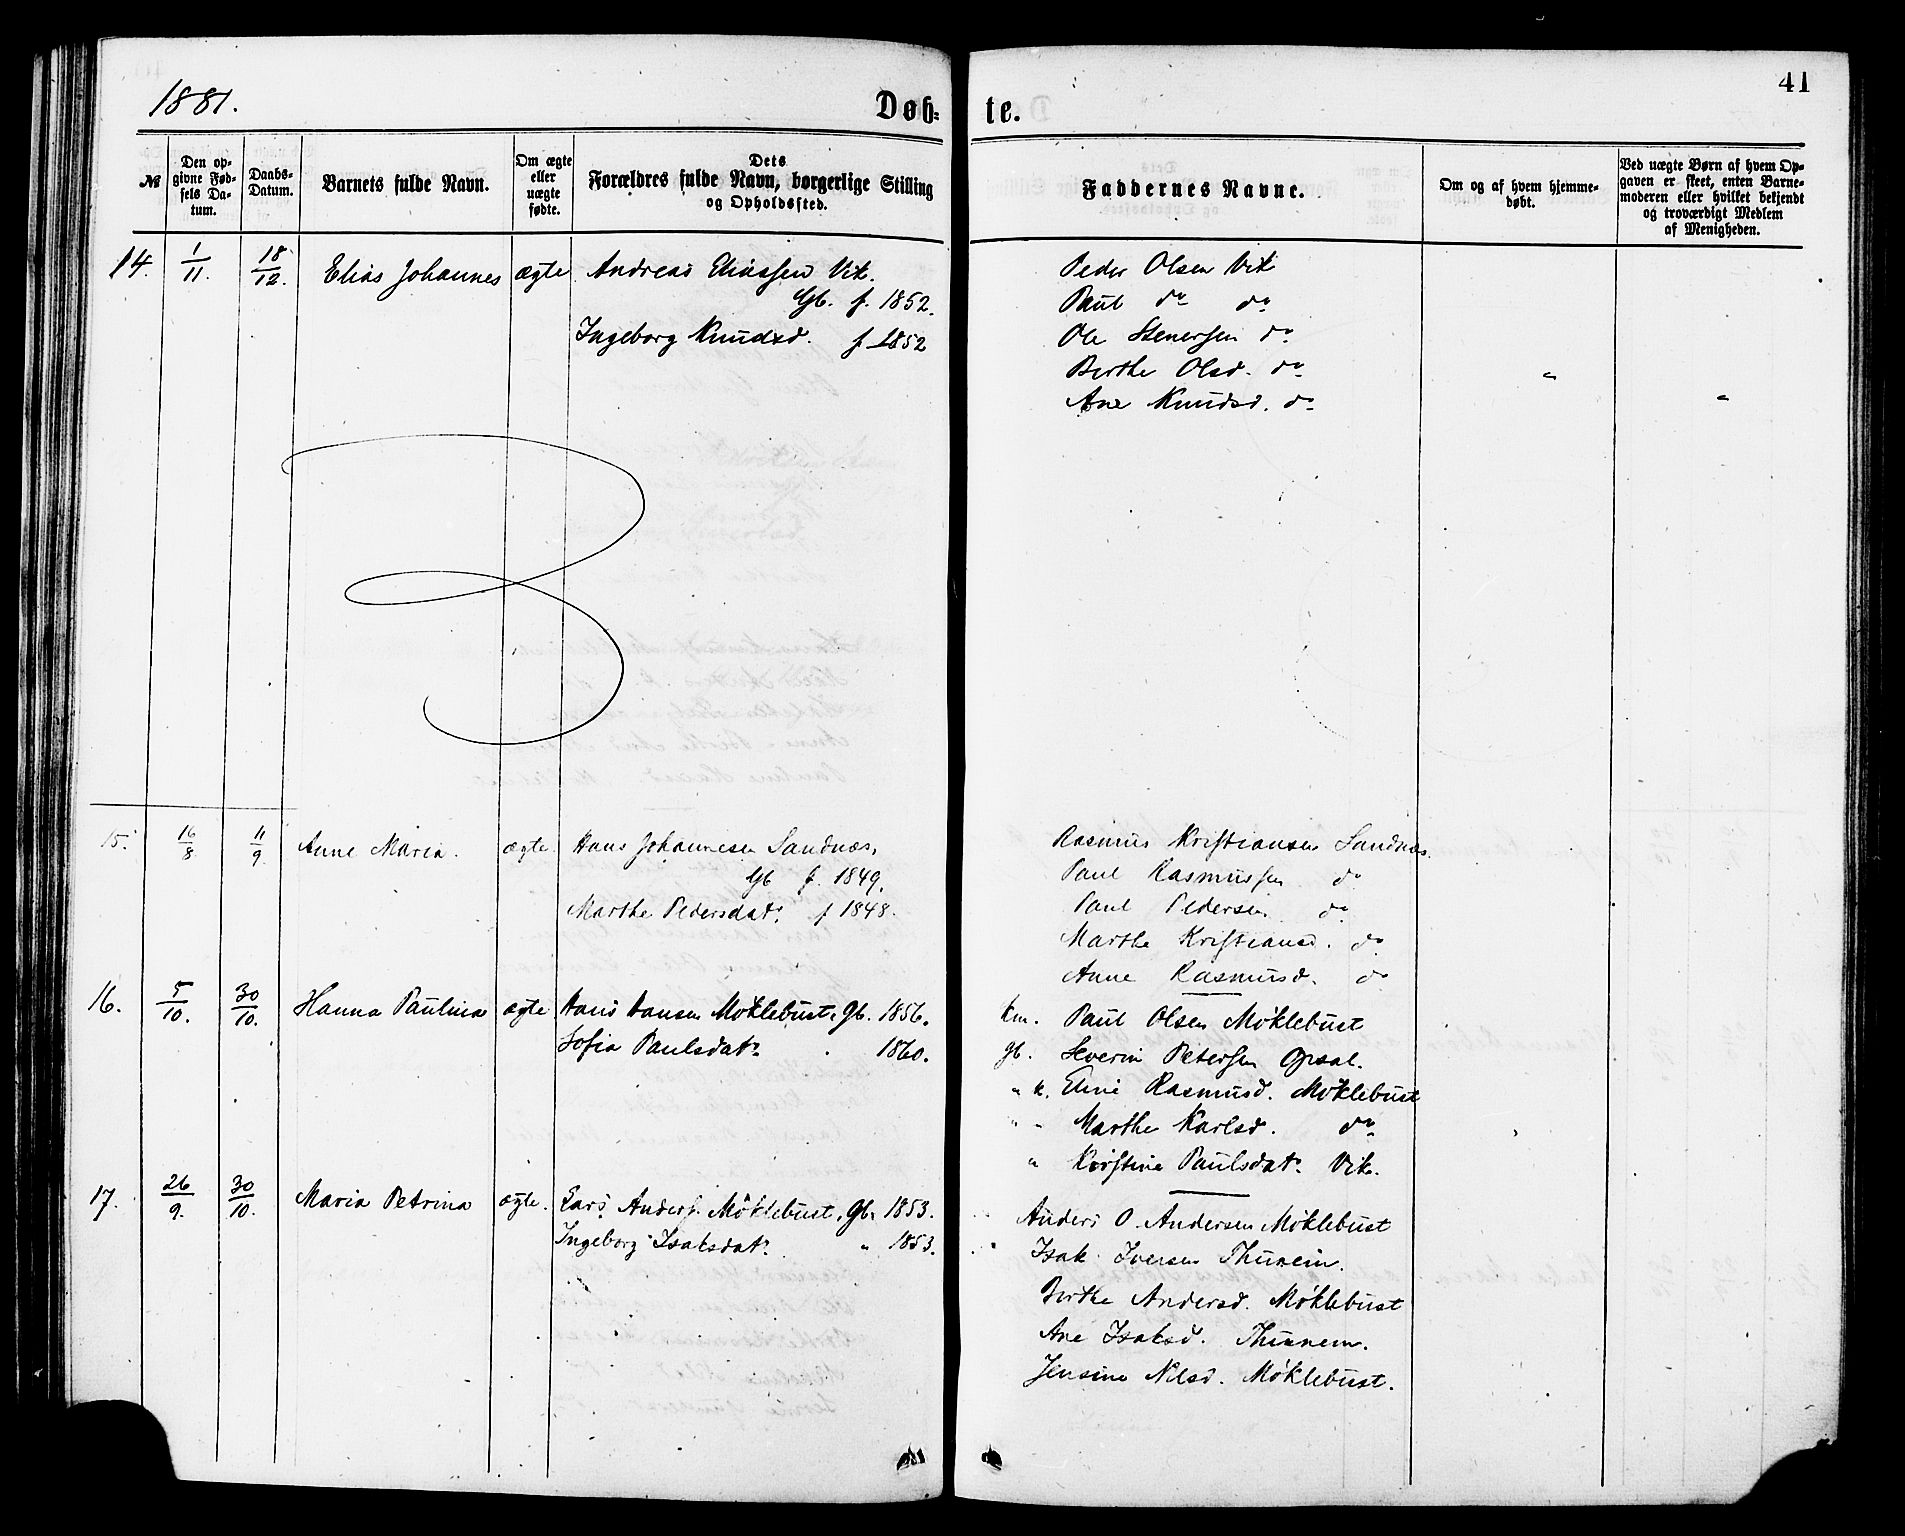 1881.
Døb-
te.
41
№
Den opgivne Fødsels Datum.
Daabs-Datum.
Barnets fulde Navn.
Om ægte eller uægte fødte.
Dets Forældres fulde Navn, borgerlige Stilling og Opholdssted.
Faddernes Navne.
Om og af hvem hjemmedøbt.
Ved uægte Børn af hvem Opgaven er skeet, enten Barnemoderen eller hvilket bekjendt og troværdigt Medlem af Menigheden.
14. 1/11. 18/12. Elias Johannes ægte Andreas Eliassen Vik.
Gb. f. 1852.
Ingeborg Knudsd. f 1852
Peder Olsen Vik
Paul do do
Ole Stenersen do
Berthe Olsd. do
Ane Knudsd. do
15. 16/8 11/9. Anne Maria. ægte Hans Johannesen Sandnæs,
Gb f. 1849.
Marthe Pedersdatr f 1848.
Rasmus Kristiansen Sandnæs.
Paul Rasmussen do
Paul Pedersen do
Marthe Kristiansd. do
Anne Rasmusd. do
16. 5/10. 30/10. Hanna Paulina ægte Hans Hansen Møklebust, Gb. 1856.
Sofia Paulsdatr. 1860.
Km. Paul Olsen Møklebust
gb. Severin Petersen Opsal.
" k. Eline Rasmusd. Møklebust
" " Marthe Karlsd. do
" Kirstine Paulsdatr. Vik.
17. 26/9. 30/10. Maria Petrina ægte. Lars Anders. Møklebust, Gb. 1853.
Ingeborg Isaksdatr. " 1853.
Anders O. Andersen Møklebust
Isak Iversen Thunem.
Berthe Andersd. Møklebust
Ane Isaksd. Thunem.
Jensine Nilsd. Møklebust.